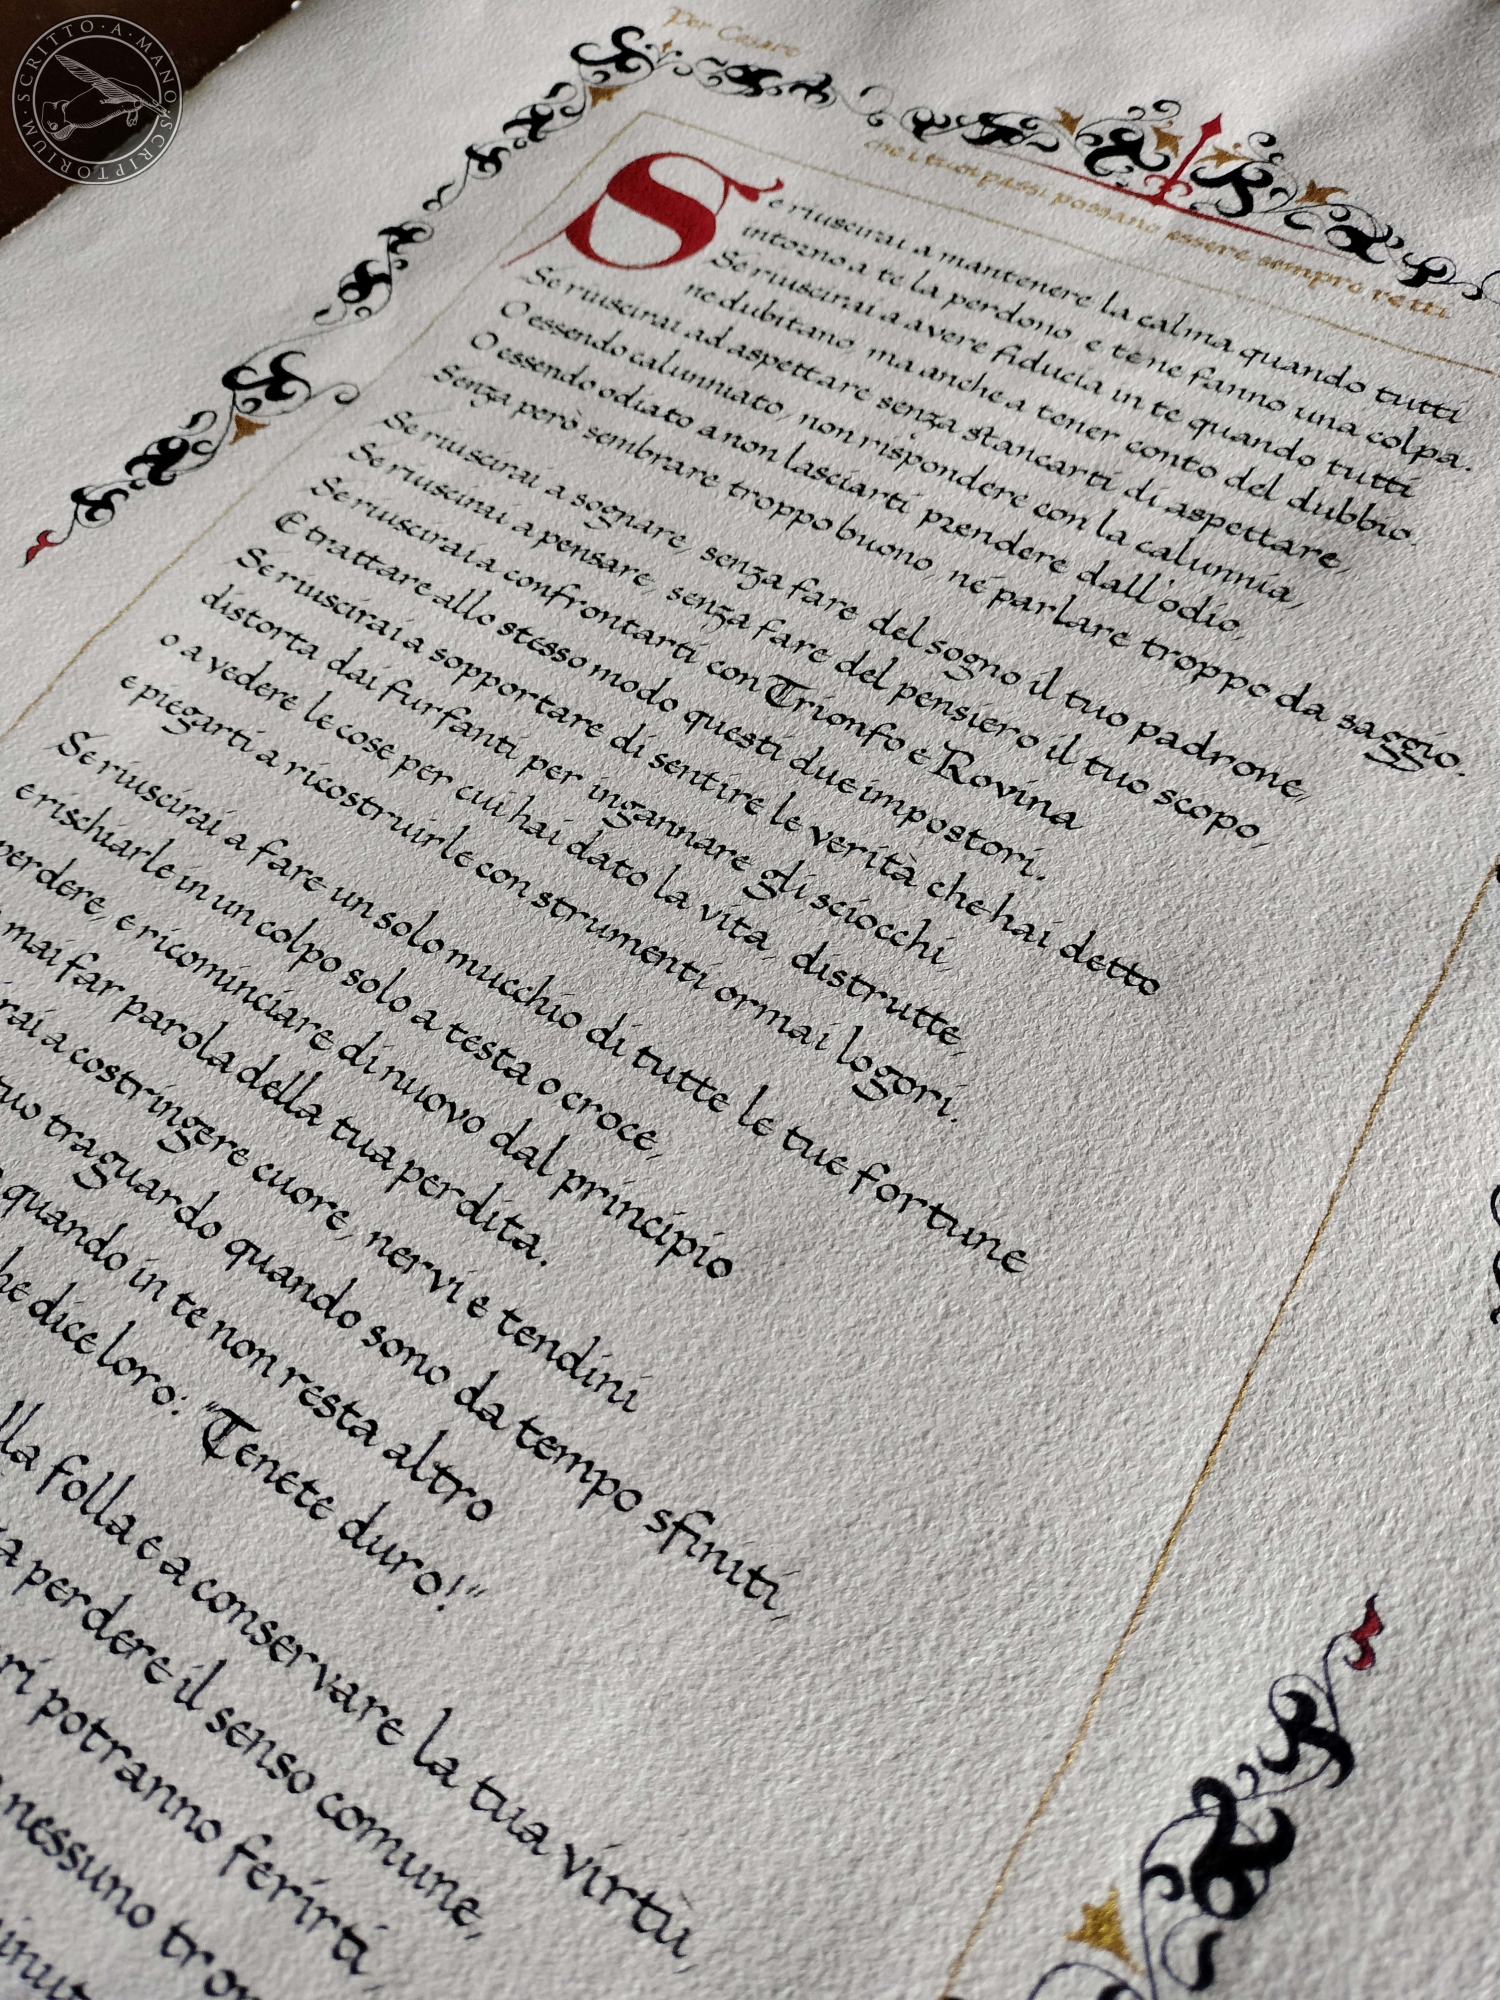 SCRITTO·A·MANO·SCRIPTORIUM·
Per Cesare
che i tuoi passi possano essere sempre retti
Se riuscirai a mantenere la calma quando tutti
intorno a te la perdono, e te ne fanno una colpa.
Se riuscirai a avere fiducia in te quando tutti
ne dubitano, ma anche a tener conto del dubbio.
Se riuscirai ad aspettare senza stancarti di aspettare,
O essendo calunniato, non rispondere con la calunnia,
O essendo odiato a non lasciarti prendere dall'odio,
Senza però sembrare troppo buono, né parlare troppo da saggio.
Se riuscirai a sognare, senza fare del sogno il tuo padrone,
Se riuscirai a pensare, senza fare del pensiero il tuo scopo,
Se riuscirai a confrontarti con Trionfo e Rovina
E trattare allo stesso modo questi due impostori.
Se riuscirai a sopportare di sentire le verità che hai detto
distorta dai furfanti per ingannare gli sciocchi,
o a vedere le cose per cui hai dato la vita, distrutte,
e piegarti a ricostruirle con strumenti ormai logori.
Se riuscirai a fare un solo mucchio di tutte le tue fortune
e rischiarle in un colpo solo a testa o croce,
perdere, e ricominciare di nuovo dal principio
mai far parola della tua perdita.
rai a costringere cuore, nervi e tendini
tuo traguardo quando sono da tempo sfiniti,
quando in te non resta altro
he dice loro: "Tenete duro!"
lla folla e a conservare la tua virtù,
a perdere il senso comune,
ri potranno ferirti,
nessuno trop
inut